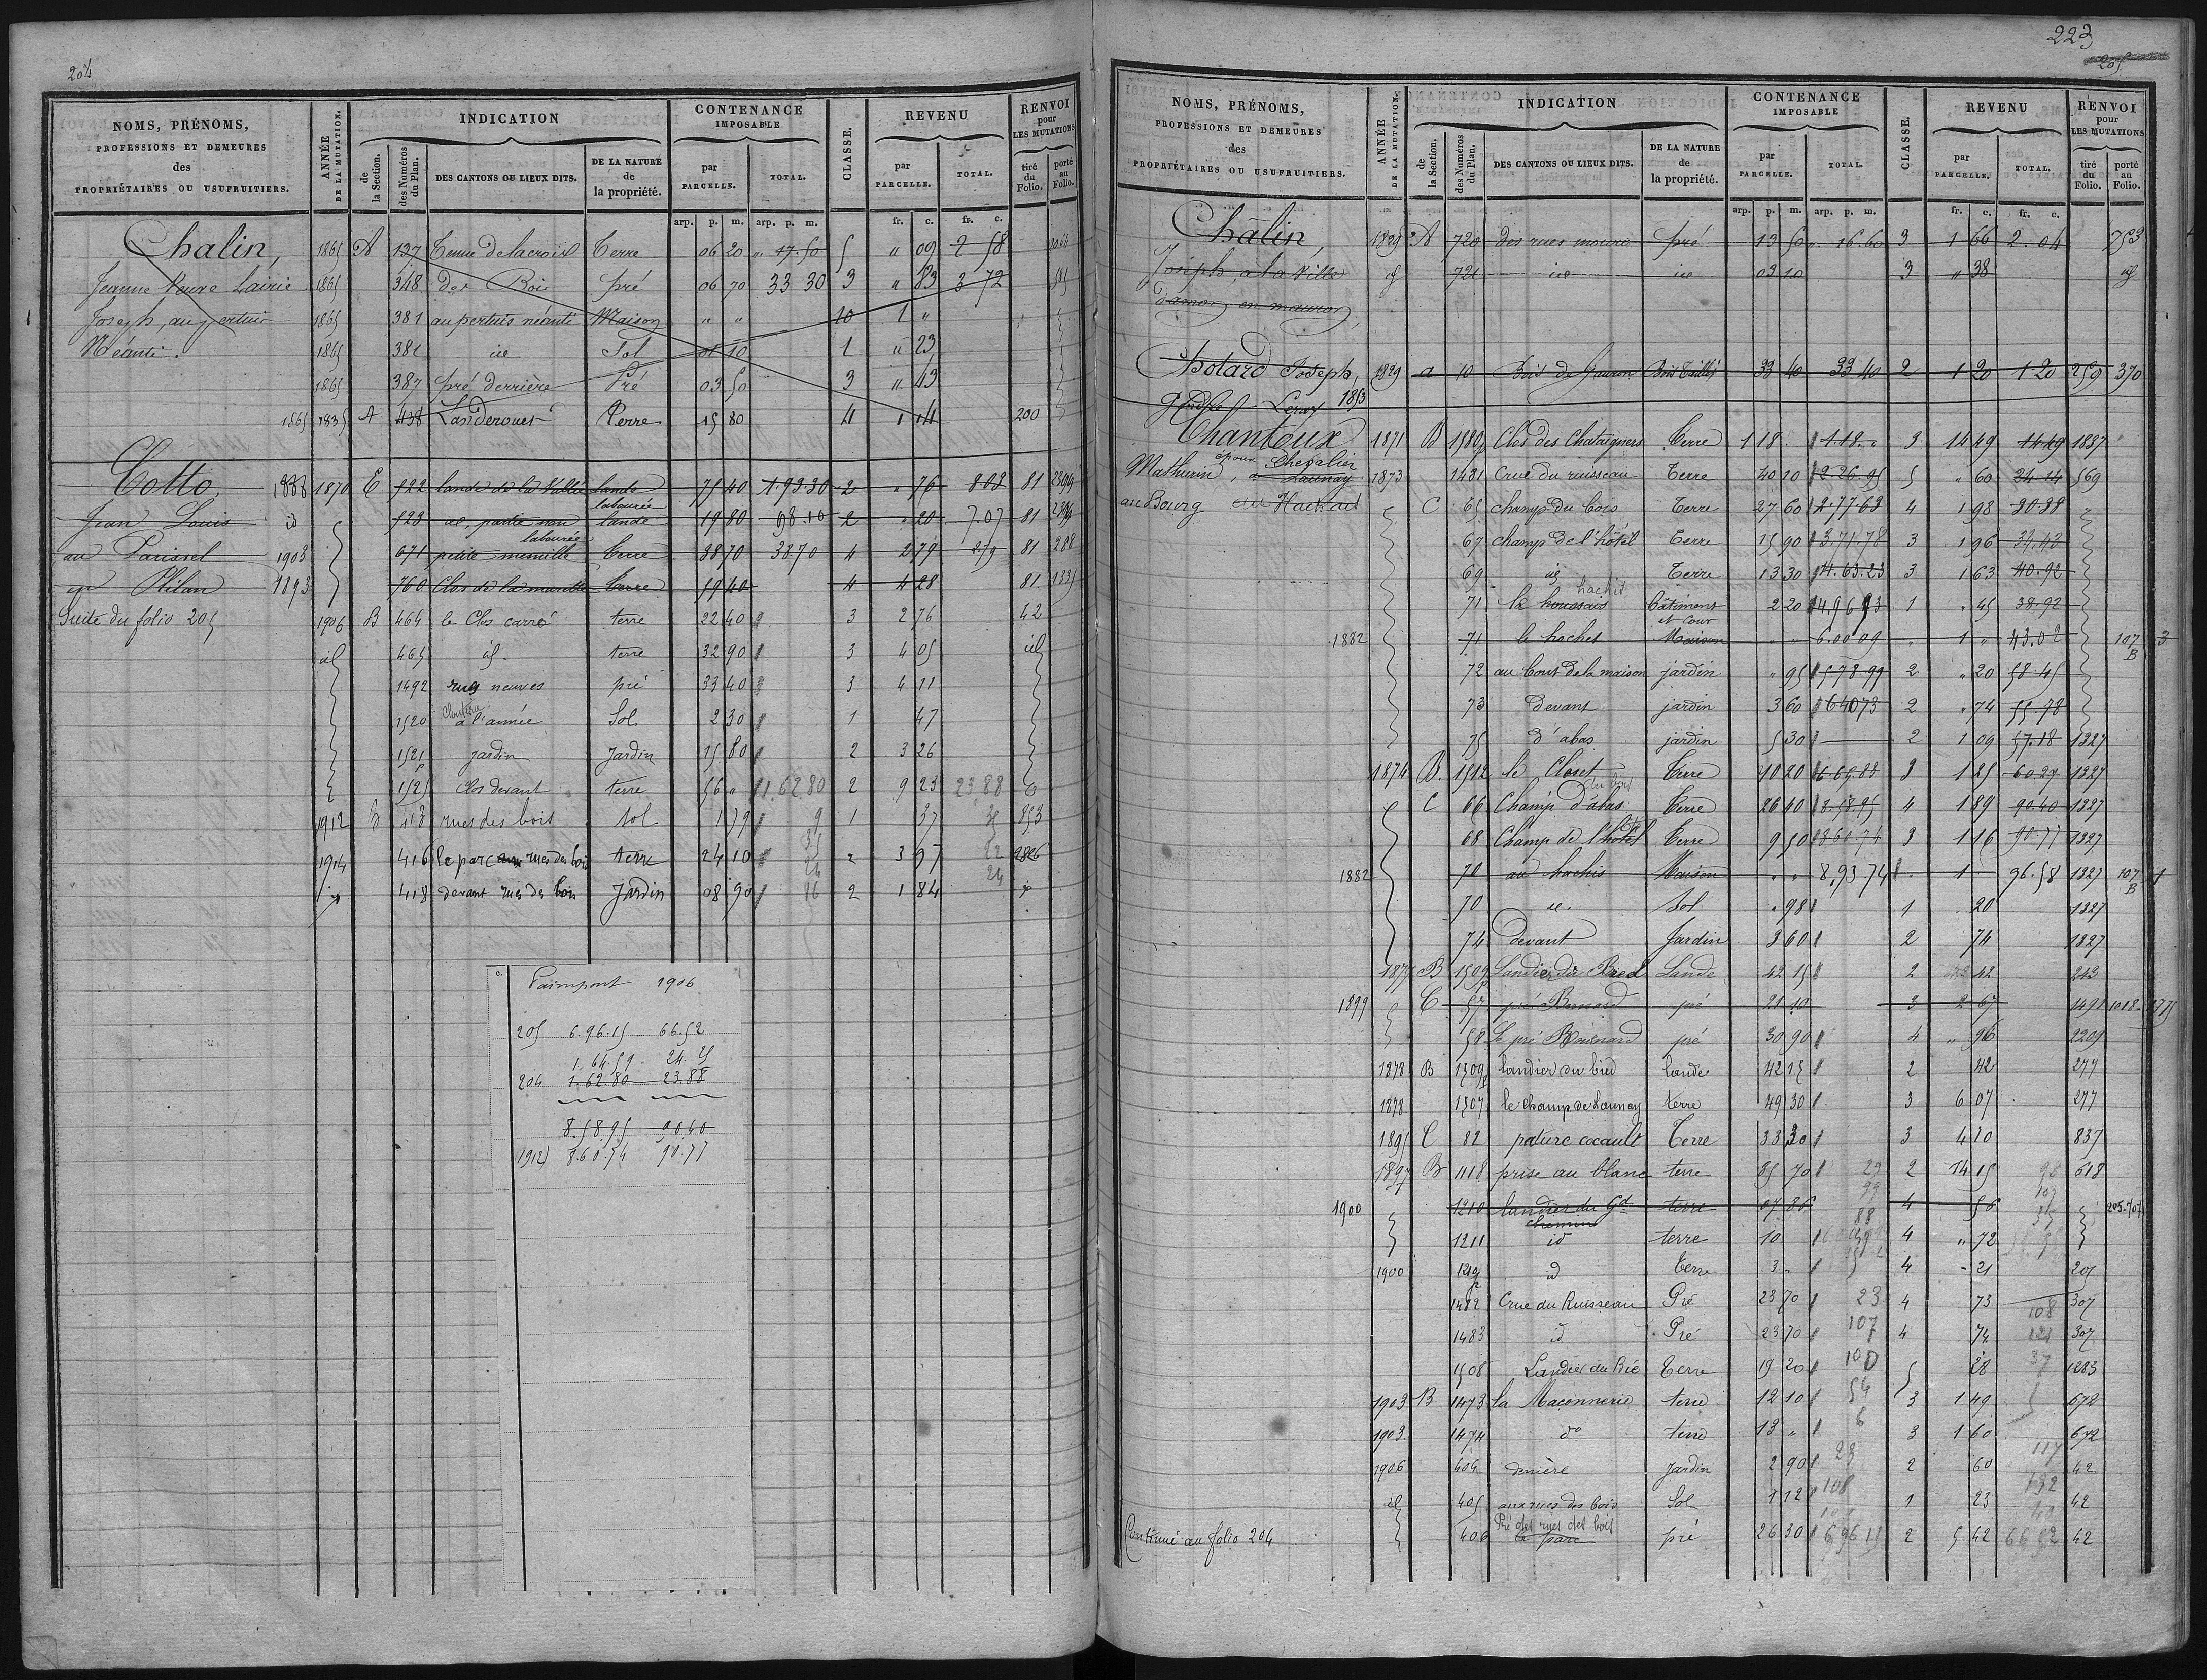 204
NOMS, PRÉNOMS, PROFESSIONS ET DEMEURES des PROPRIÉTAIRES OU USUFRUITIERS.
ANNÉE DE LA MUTATION.
INDICATION
de la Section.
des Numéros du Plan.
DES CANTONS OU LIEUX DITS.
DE LA NATURE de la propriété.
CONTENANCE IMPOSABLE
par PARCELLE.
TOTAL.
CLASSE.
REVENU
par PARCELLE.
TOTAL.
RENVOI pour LES MUTATIONS
tiré du Folio.
porté au Folio.
arp. p. m. arp. p. m. fr. c. fr. c.
Chalin, 1865 A 137 Tenue de lacroix Terre 06 20 " 17.50 5 " 09 2 58
Jeanne Veuve Lairie 1865 348 des Bois pré 06 70 33 30 3 " 83 3 72 505
Joseph, au pertuis 1865 381 au pertuis néanti Maison " " 10 1 "
Néanti. 1865 381 id Sol 01 10 1 " 23
1865 387 pré derrière Pré 03 50 3 " 43
1865 1835 A 438 Landerouet Terre 15 80 4 1 14 200
Cotto, 1888 1870 E 522 lande de la Vallée lande 75 40 1.93 30 2 " 76 8.03 81
labourée
Jean Louis id 523 id, partie non lande 19 80 98.10 2 " 20 7.07 81
labourée
au Parissel 1903 671 petite Terre 38 70 38.70 4 2 79 2 79 81 288
en Plélan 1893 760 Clos de la marette terre 59 40 4 4 28 81 1335
Suite du folio 205 1906 B 464 le Clos carré terre 22 40 3 2 76 42
id 465 id. terre 32 90 3 4 05 id
1492 rues neuves pré 33 40 3 4 11
1520 à l'année Sol 2 30 1 47
1521 jardin Jardin 15 80 2 3 26
1525 p Clos devant terre 56 " 1.62 80 2 9 23 23,88
1912 413 rues des bois sol 1 79 9 1 37 35 853
1914 416 le parc aux rues des bois terre 24 10 2 3 97 2826
id 418 devant rues des bois Jardin 08 90 2 1 84 id
c.
Paimpont 1906
205 6.96.15 66.52
1.64.59 24.25
204 1.62.80 23.88
8.58.95 90.40
1912) 8.60.74 90.77
223
205
NOMS, PRÉNOMS, PROFESSIONS ET DEMEURES des PROPRIÉTAIRES OU USUFRUITIERS.
ANNÉE DE LA MUTATION.
INDICATION
de la Section.
des Numéros du Plan.
DES CANTONS OU LIEUX DITS.
DE LA NATURE de la propriété.
CONTENANCE IMPOSABLE
par PARCELLE.
TOTAL.
CLASSE.
REVENU
par PARCELLE.
TOTAL.
RENVOI pour LES MUTATIONS
tiré du Folio.
porté au Folio.
arp. p. m. arp. p. m. fr. c. fr. c.
Chalin, 1825 A 720 des rues moure pré 13 50 " 16.60 3 1 66 2.04 253
Joseph, à la Ville id 721 id id 03 10 3 " 38 id
Danon en mauron,
Chotard Joseph, 1829 a 10 Bois de Gauron Bois Taillis 33 40 33 40 2 1 20 1 20 259 370
gendre Leray 1853
Chantoux 1871 B 1580 Clos des Chataigners Terre 1 18 " 1.18. " 3 14 49 14.49 1887
époux Chevalier
Mathurin, a Launay 1873 1481 Crue du ruisseau Terre 40 10 2.26 95 5 " 60 24 14 569
au Bourg au Hachais C 65 champ du bois Terre 27 60 2.77 63 4 1 98 30.88
67 champ de l'hôtel Terre 15 90 3.71.78 3 1 96 34.43
69 id Terre 13 30 4.63.23 3 1 63 40.92
hachis
71 le houssais bâtiment et Cour 2 20 4.96 93 1 " 45 38.92
1882 71 le hachet Maison " " 6.00 09 " 1 " 43.02 107 B 3
72 au bout de la maison jardin " 95 5 78 99 2 " 20 58.45
73 devant jardin 3 60 6 40 73 2 " 74 55.78
75 d'abas jardin 5 30 2 1 09 57.18 1327
1874 B. 1512 le Closet Terre 10 20 3 1 25 60.27 1327
C 66 Champ d'abas Terre 26 40 8.58.95 4 1 89 90.40 1327
68 Champ de l'hôtel Terre 9 50 8 60.74 3 1 16 90.77 1327
1882 70 au hachis Maison " " 8,93 74 " 1 " 96.58 1327 107 B 1
70 id. Sol " 98 1 " 20 1327
74 devant Jardin 3 60 2 74 1327
1877 B 1509 p Landier du Bied Lande 42 15 2 42 243
1899 C 57 pré Bernard pré 21 10 3 2 67 1491 1018 1775
58 Le pré Bernard pré 30 90 4 " 96 2209
1878 B 1509 p landier du bied lande 42 15 2 42 277
1878 1507 le champ de Launay terre 49 30 3 6 07 277
1895 C 82 pature cocault Terre 33 30 3 4 10 837
1897 B 1118 prise au blanc terre 85 70 29 2 14 15 618
1900 1210 landier du Gd chemin terre 07 86 4 56 205-707
1211 id terre 10 4 " 72
1900 1219 p id Terre 3 " 4 " 21 205
1482 Crue du Ruisseau Pré 23 70 23 4 73 108 307
1483 id Pré 23 70 107 4 74 121 307
1508 Landier du Bié Terre 19 20 100 5 28 37 1283
1903 B 1473 la Maconnerie terre 12 10 54 3 1 49 672
1903 1474 do terre 13 " 6 3 1 60 672
1906 404 derrière Jardin 2 90 23 2 60 117 42
id 405 aux rues des bois Sol 1 12 108 1 23 132 42
Pré des rues des bois
Continué au folio 204 406 le parc pré 26 30 6,96 15 2 5 42 66 52 42